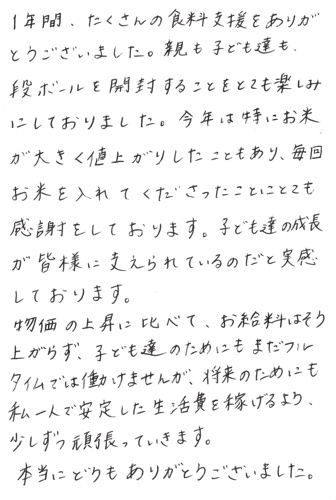 1年間、たくさんの食料支援をありが
とうございました。親も子ども達も、
段ボールを開封することをとても楽しみ
にしておりました。今年は特にお米
が大きく値上がりしたこともあり、毎回
お米を入れてくださったことにとても
感謝をしております。子ども達の成長
が皆様に支えられているのだと実感
しております。
物価の上昇に比べて、お給料はそう
上がらず、子ども達のためにもまだフル
タイムでは働けませんが、将来のためにも
私一人で安定した生活費を稼げるよう、
少しずつ頑張っていきます。
本当にどうもありがとうございました。